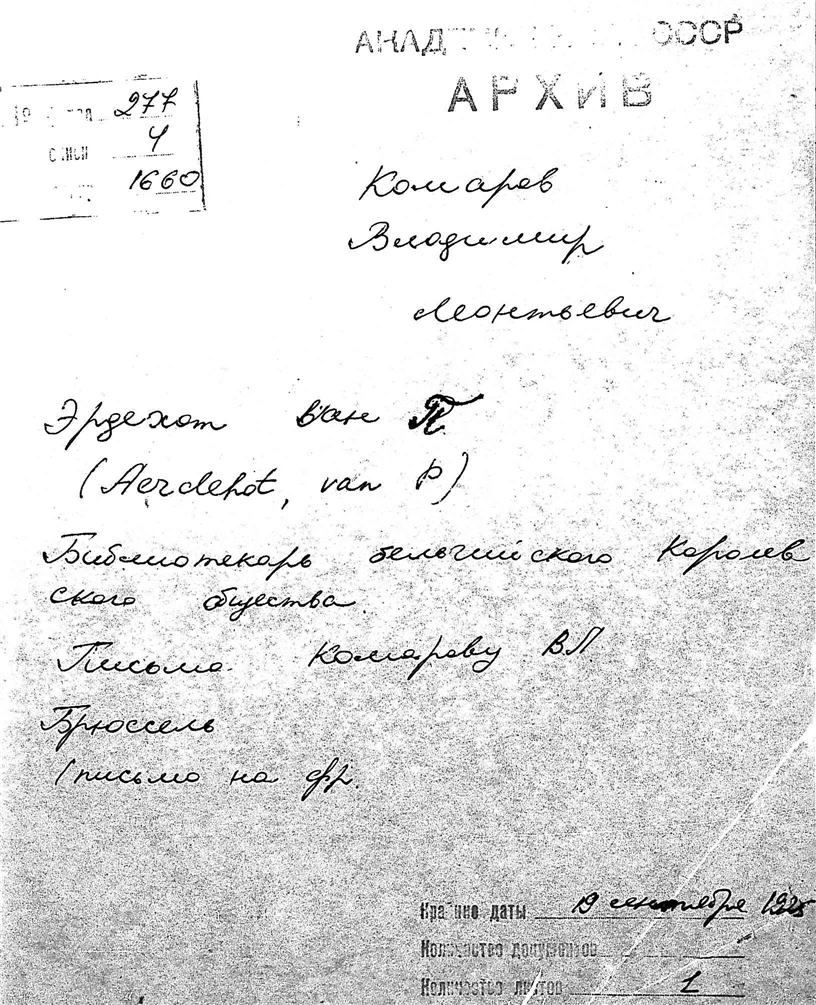 АКАД СССР
АРХИВ
277
опись 4
1660
Комаров
Владимир
Леонтьевич
Эрдехот ван П.
(Aerdehot, van P)
Библиотекарь бельгийского Королев
ского общества.
Письмо Комарову В.Л
Брюссель
(письмо на фр.
Крайние даты 19 сентября 1925
Количество документов
Количество листов 1